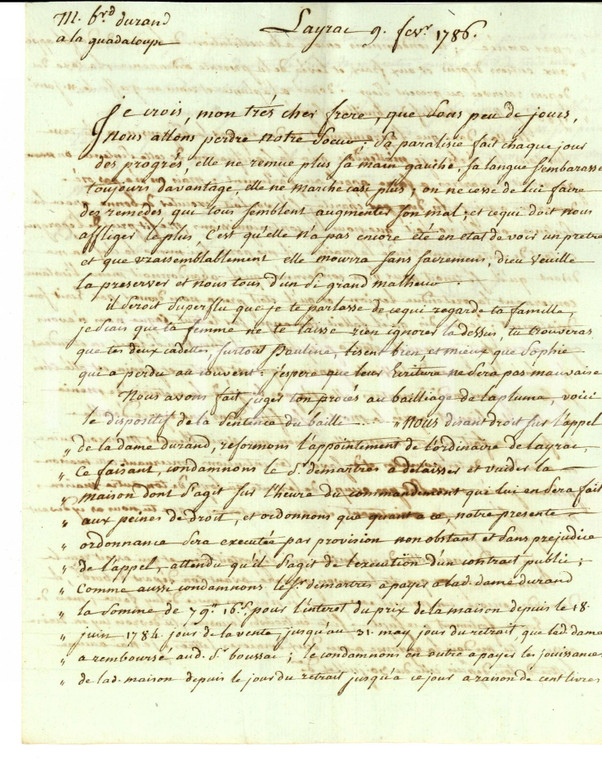 M. b.rd durand
a la guadaloupe
Layrac 9. fevr. 1786.
Je crois, mon trés cher frere, que sous peu de jours,
Nous allons perdre notre Soeur, Sa paralisie fait chaque jour
des progrés, elle ne remue plus sa main gauche, sa langue s'embarasse
toujours davantage, elle ne marche casi plus; on ne cesse de lui faire
des remedes qui tous semblent augmenter son mal; et cequi doit nous
affliger le plus c'est qu'elle n'a pas encore été en etat de voir un pretre
et que vraisemblablement elle mourra sans sacremens, dieu veuille
la preserver et nous tous d'un si grand malheur.
il seroit superflu que je te parlasse de cequi regarde ta famille,
je sais que ta femme ne te laisse rien ignorer la dessus, tu trouveras
que tes deux cadettes, surtout Pauline, lisent bien et mieux que Sophie
qui a perdu au couvent: j'espere que leur Ecriture ne sera pas mauvaise
Nous avons fait juger ton procés au bailliage de la pluma, voici
le dispositif de la sentence du bailli - Nous disant droit sur l'appel
" de la dame durand, reformons l'appointement de l'ordinaire de layrac,
" ce faisant, condamnons le Sr. demartres a delaisser et vuider la
" maison dont s'agit sur l'heure du commandement que lui en sera fait
" aux peines de droit, et ordonnons que quant a ce, notre presente
" ordonnance sera executée par provision non obstant et sans prejudice
" de l'appel, attendu qu'il s'agit de l'execution d'un contrat public;
" Comme aussi condamnons le Sr. demartres a payer a lad. dame durand
" la somme de 79# 16s. pour l'interet du prix de la maison depuis le 18.
" juin 1784. jour de la vente, jusqu'au 31. may, jour du retrait que led. dame
" a remboursé aud. Sr. boussac; le condamnons en outre a payer les jouissances
" de lad. maison depuis le jour du retrait jusqu'a ce jour a raison de cent livres